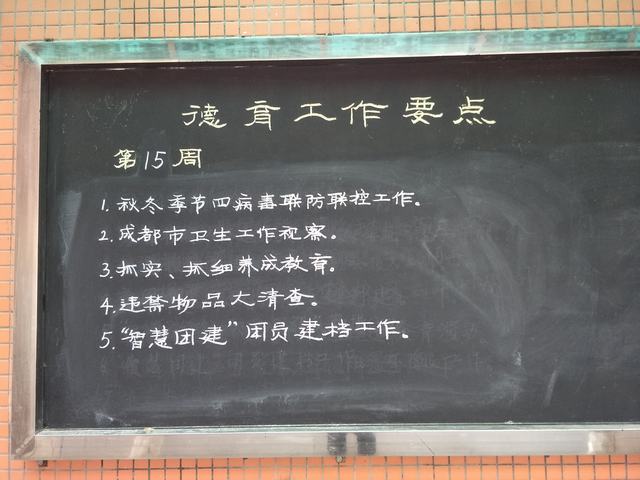 德育工作要点
第15周
1. 秋冬季节四病毒联防联控工作。
2. 成都市卫生工作视察。
3. 抓实、抓细养成教育。
4. 违禁物品大清查。
5. “智慧团建”团员建档工作。